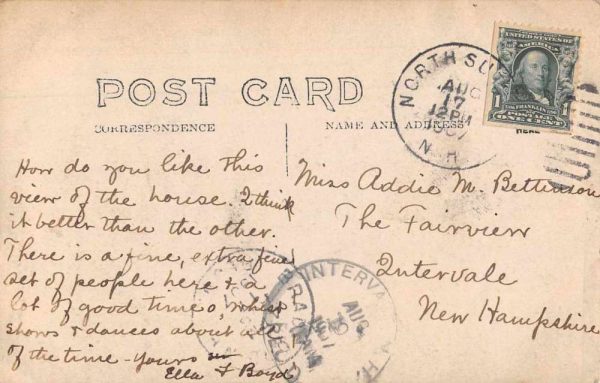 POST CARD
CORRESPONDENCE
NAME AND ADDRESS
HERE
NORTH SU
AUG
17
12 PM
1907
N.H.
UNITED STATES OF
AMERICA
1 1
FRANKLIN
POSTAGE
ONE CENT
How do you like this
view of the house. I think
it better than the other.
There is a fine, extra fine
set of people here & a
lot of good times, whist
shows & dances about all
of the time - yours
Ella F Boyd
Miss Addie M. Bettinson
The Fairview
Intervale
New Hampshire
INTERVA
AUG
N.H.
REC'D